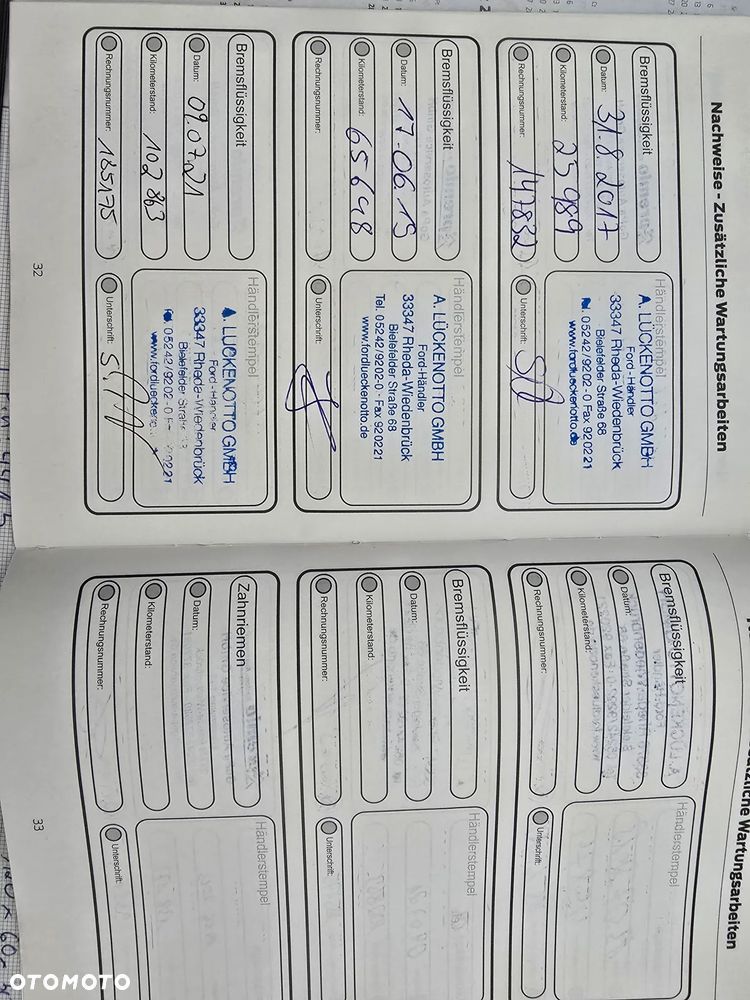 Nachweise - Zusätzliche Wartungsarbeiten
Bremsflüssigkeit
Datum: 31.8.2017
Kilometerstand: 25989
Rechnungsnummer: 147832
Händlerstempel
A. LÜCKENOTTO GMBH
Ford-Händler
33347 Rheda-Wiedenbrück
Bielefelder Straße 68
Tel. 05242/9202-0 Fax 920221
www.fordlueckenotto.de
Unterschrift:
Bremsflüssigkeit
Datum: 17.06.19
Kilometerstand: 65648
Rechnungsnummer:
Händlerstempel
A. LÜCKENOTTO GMBH
Ford-Händler
33347 Rheda-Wiedenbrück
Bielefelder Straße 68
Tel. 05242/9202-0 · Fax 920221
www.fordlueckenotto.de
Unterschrift:
Bremsflüssigkeit
Datum: 09.07.21
Kilometerstand: 102863
Rechnungsnummer: 185175
Händlerstempel
A. LÜCKENOTTO GMBH
Ford-Händler
33347 Rheda-Wiedenbrück
Bielefelder Straße
05242/9202-0 20221
Unterschrift:
32
Zusätzliche Wartungsarbeiten
Bremsflüssigkeit
Datum:
Kilometerstand:
Rechnungsnummer:
Händlerstempel
Unterschrift:
Bremsflüssigkeit
Datum:
Kilometerstand:
Rechnungsnummer:
Händlerstempel
Unterschrift:
Zahnriemen
Datum:
Kilometerstand:
Rechnungsnummer:
Händlerstempel
Unterschrift:
33
OTOMOTO